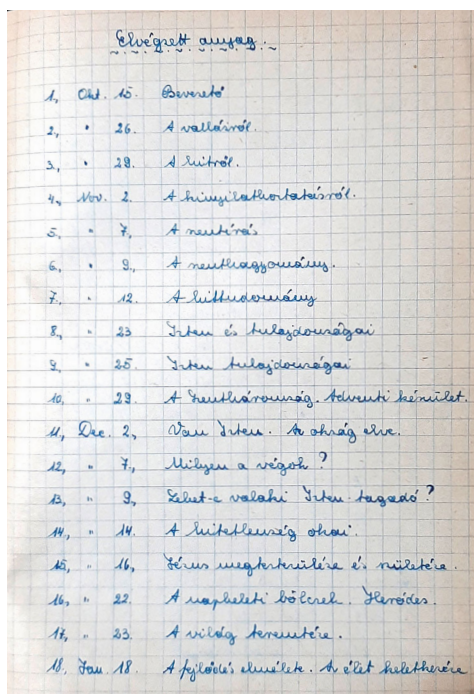 Elvégzett anyag.
1, Okt. 15. Bevezető
2, " 26. A vallásról.
3, " 29. A hitről.
4, Nov. 2. A kinyilatkoztatásról.
5, " 7, A szentírás
6, " 9, A szenthagyomány.
7, " 12. A hittudomány
8, " 23 Isten és tulajdonságai
9, " 25. Isten tulajdonságai
10, " 29. A Szentháromság. Adventi készület.
11, Dec. 2, Van Isten. Az okság elve.
12, " 7, Milyen a végok?
13, " 9, Lehet-e valaki Isten tagadó?
14, " 14. A hitetlenség okai.
15, " 16, Jézus megtestesülése és születése.
16, " 22. A napkeleti bölcsek. Heródes.
17, " 23. A világ teremtése.
18. Jan. 18. A fejlődés elmélete. Az élet keletkezése